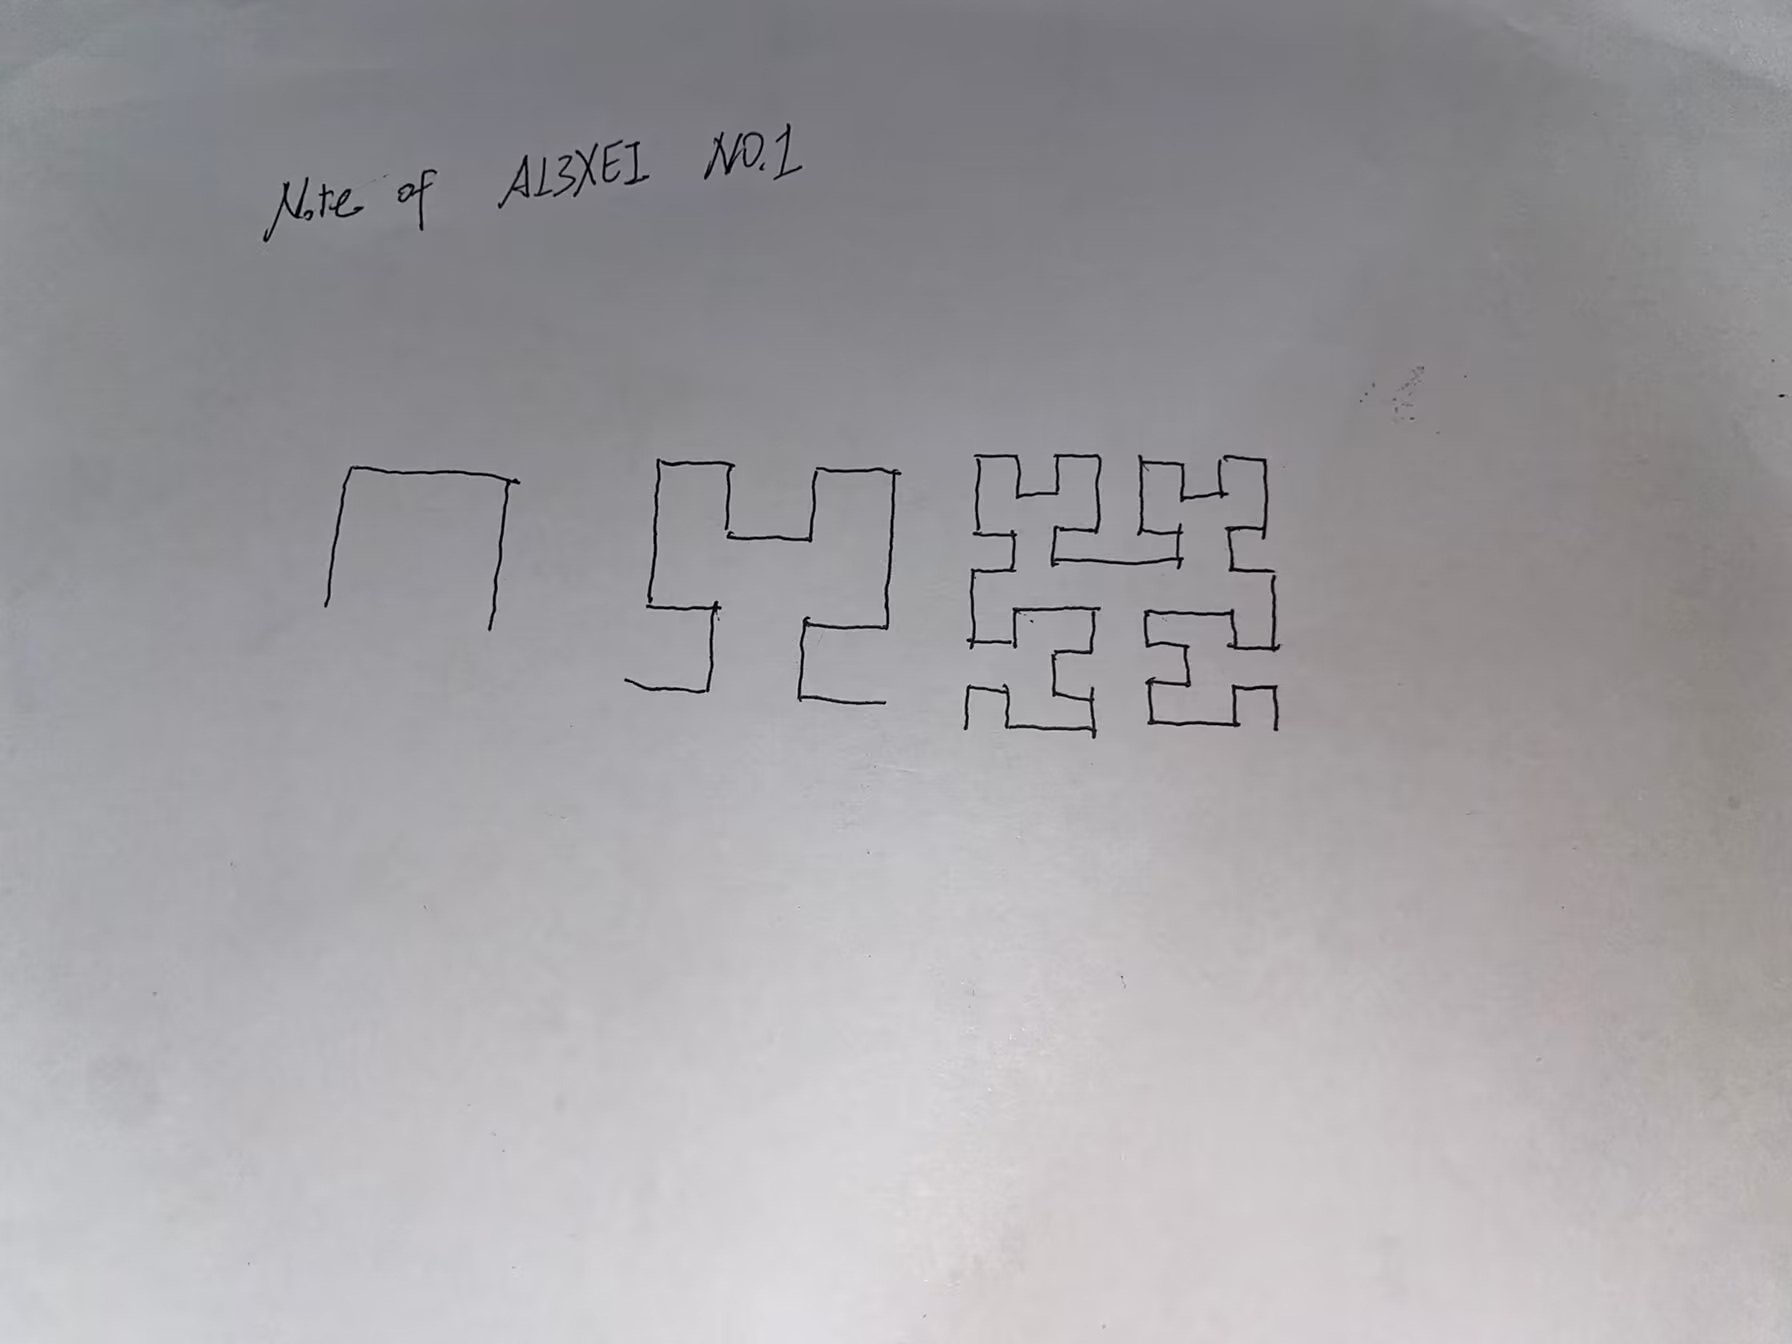 Note of AL3XEI NO.1